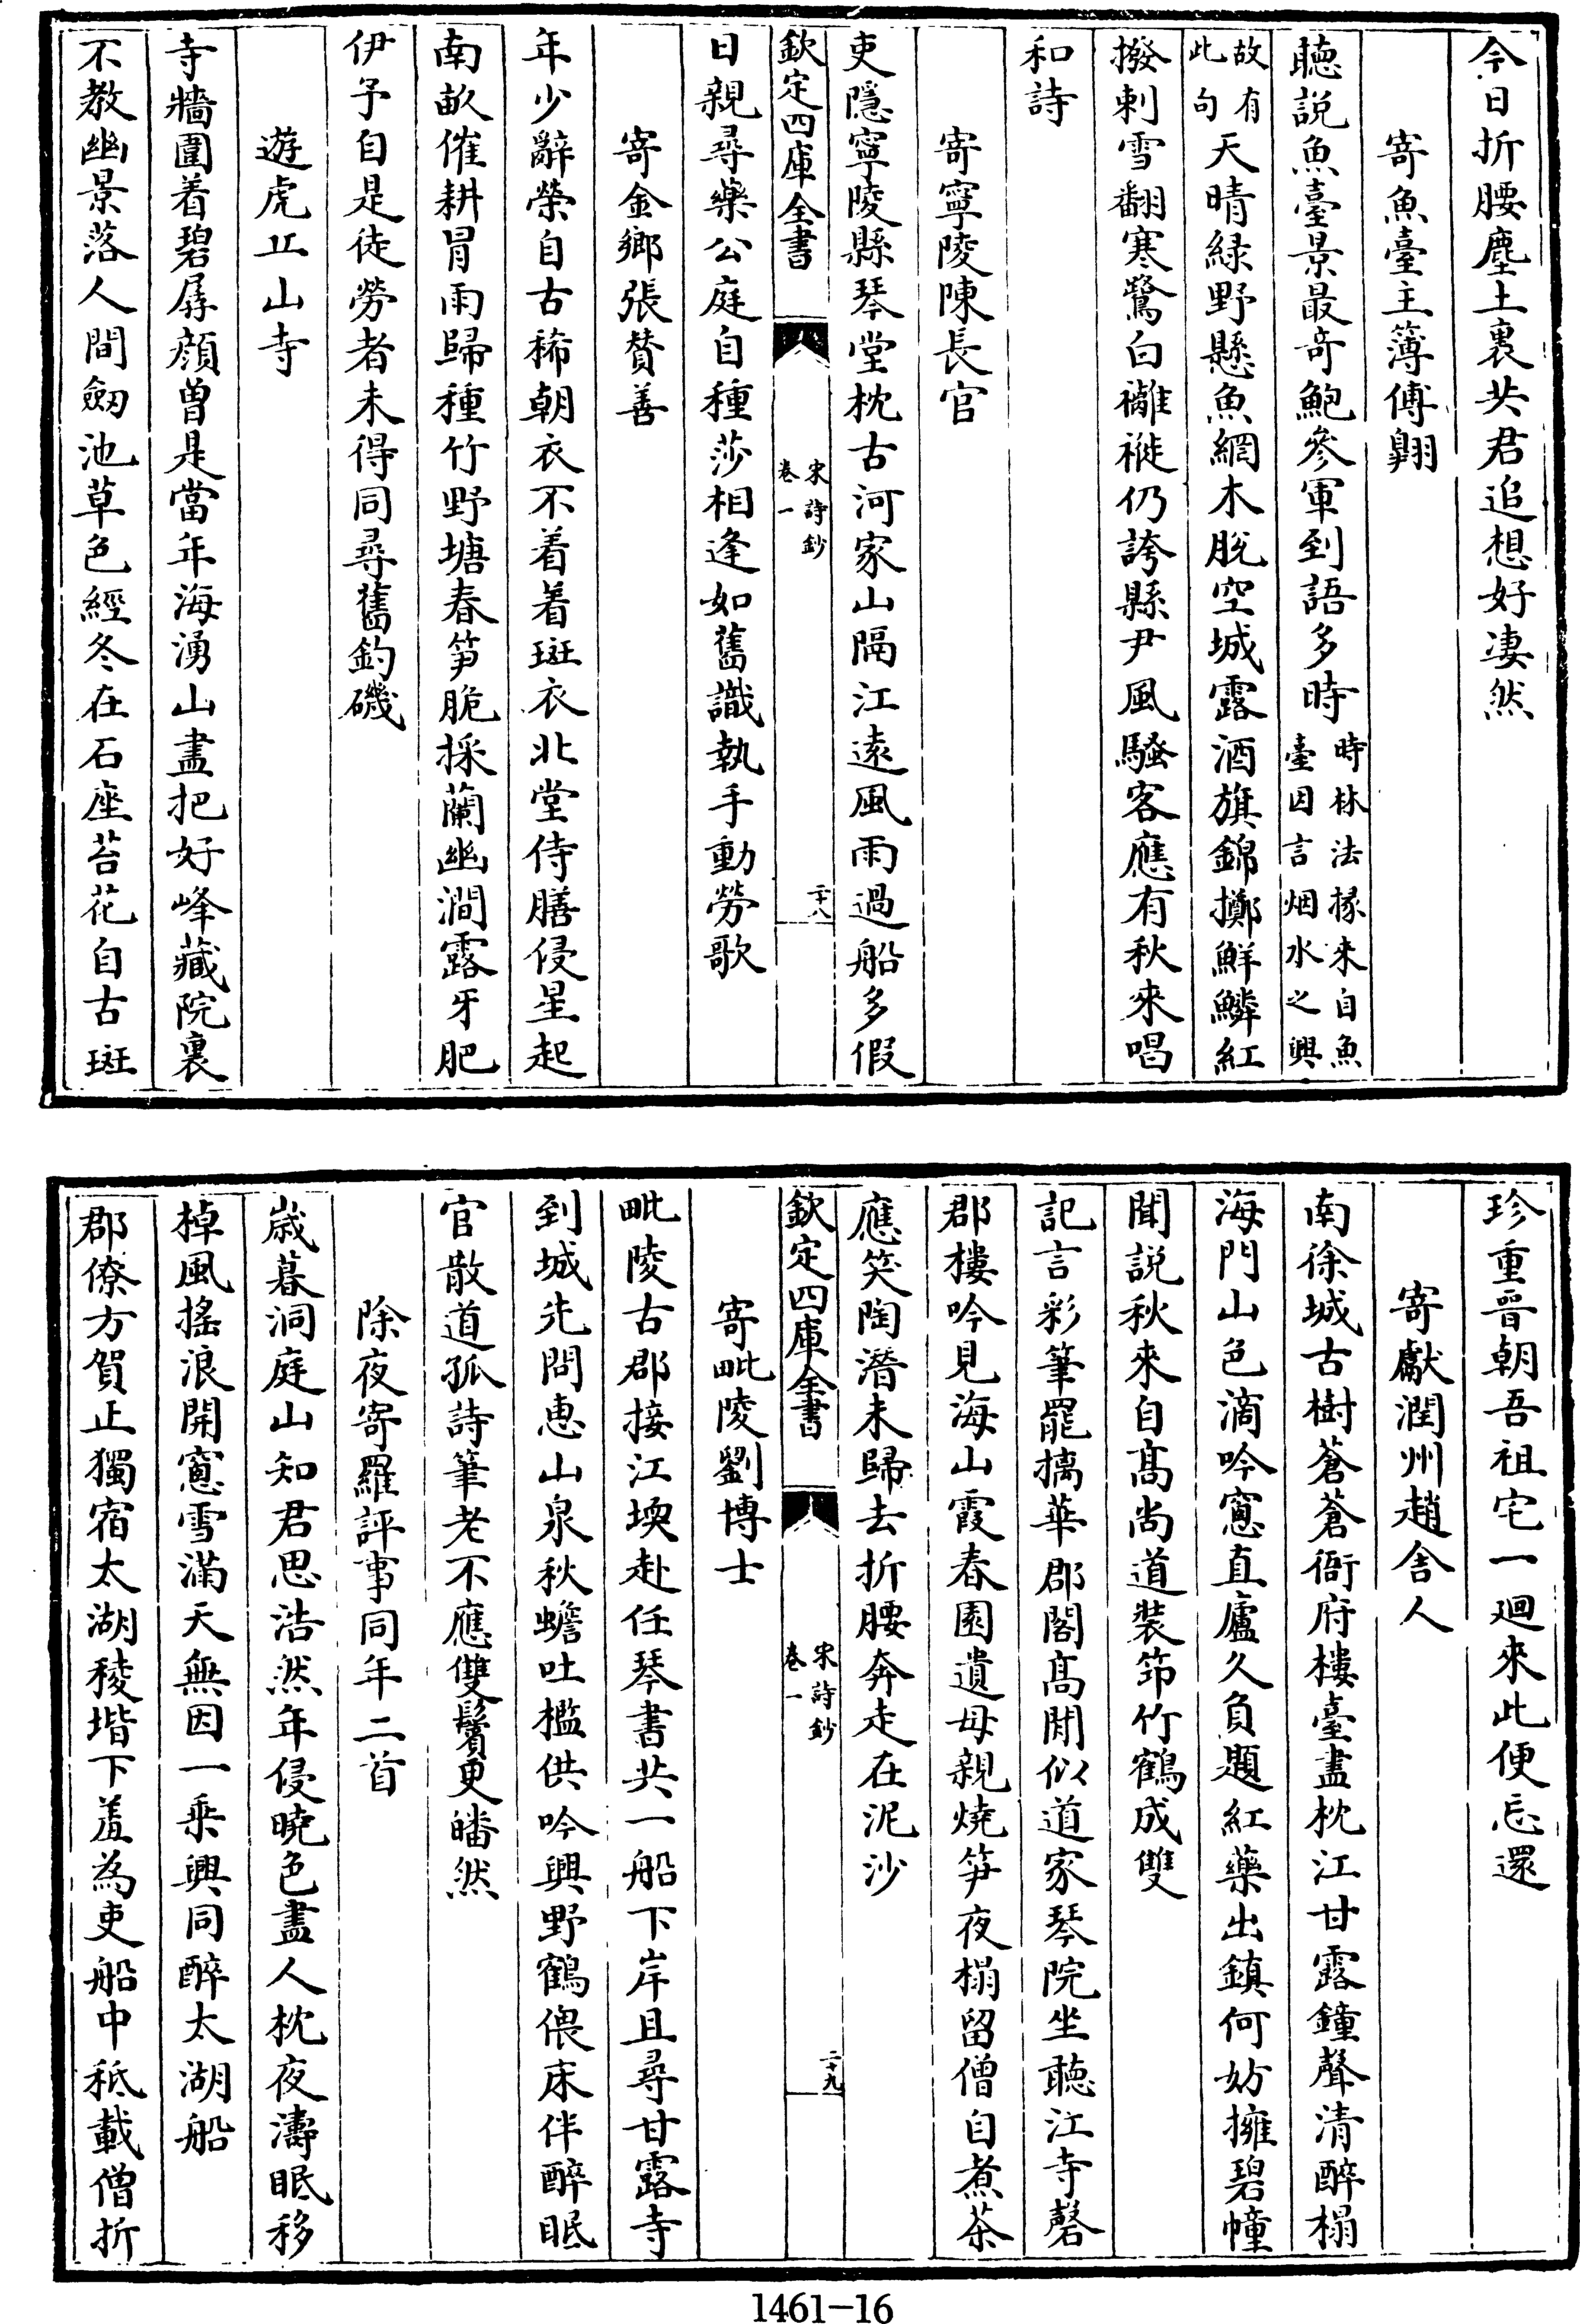 今日折腰塵土裏共君追想好凄然
寄魚臺主簿傅翺
聽説魚臺景最竒鮑參軍到語多時時林法掾來自魚臺因言烟水之興
故有此句天晴緑野懸魚網木脱空城露酒旗錦擲鮮鱗紅
撥剌雪翻寒鷺白䙰褷仍誇縣尹風騷客應有秋來唱
和詩
寄寧陵陳長官
吏隱寧陵縣琴堂枕古河家山隔江逺風雨過船多假
欽定四庫全書
宋詩鈔
卷一
二十八
日親尋藥公庭自種莎相逢如舊識執手動勞歌
寄金鄉張賛善
年少辭榮自古稀朝衣不着着斑衣北堂侍膳侵星起
南畝催耕冒雨歸種竹野塘春笋脆採蘭幽澗露牙肥
伊予自是徒勞者未得同尋舊釣磯
遊虎丘山寺
寺牆圍着碧孱顔曽是當年海湧山盡把好峰藏院裏
不教幽景落人間劔池草色經冬在石座苔花自古斑
珍重晉朝吾祖宅一廻來此便忘還
寄獻潤州趙舍人
南徐城古樹蒼蒼衙府樓臺盡枕江甘露鐘聲清醉榻
海門山色滴吟窻直廬久負題紅藥出鎮何妨擁碧幢
聞説秋來自髙尚道装笻竹鶴成雙
記言彩筆罷摛華郡閣髙閒似道家琴院坐聽江寺磬
郡樓吟見海山霞春園遺母親燒笋夜榻留僧自煮茶
應笑陶潛未歸去折腰奔走在泥沙
欽定四庫全書
宋詩鈔
卷一
二十九
寄毗陵劉博士
毗陵古郡接江堧赴任琴書共一船下岸且尋甘露寺
到城先問惠山泉秋蟾吐檻供吟興野鶴偎床伴醉眠
官散道孤詩筆老不應雙鬢更皤然
除夜寄羅評事同年二首
歳暮洞庭山知君思浩然年侵曉色盡人枕夜濤眠移
棹風搖浪開窻雪滿天無因一乗興同醉太湖船
郡僚方賀正獨宿太湖稜堦下羞為吏船中秪載僧折
1461-16